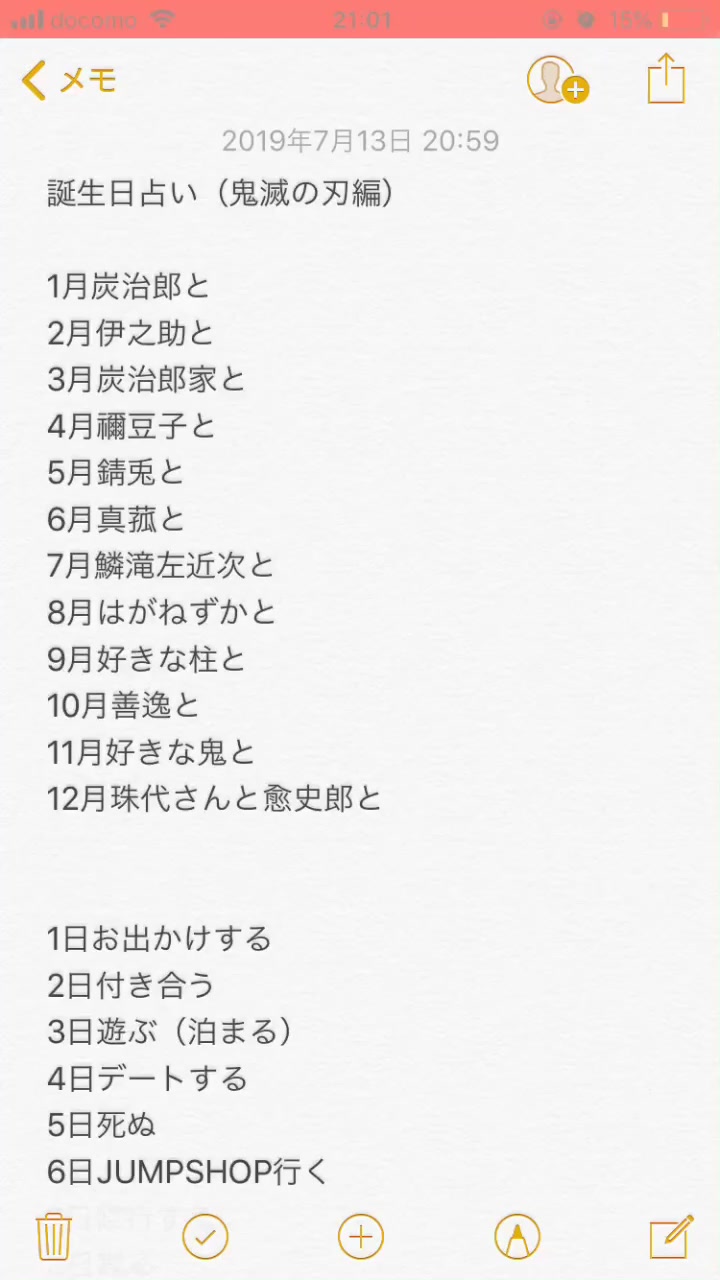 docomo 21:01 15%
メモ
2019年7月13日 20:59
誕生日占い（鬼滅の刃編）
1月炭治郎と
2月伊之助と
3月炭治郎家と
4月禰豆子と
5月錆兎と
6月真菰と
7月鱗滝左近次と
8月はがねずかと
9月好きな柱と
10月善逸と
11月好きな鬼と
12月珠代さんと愈史郎と
1日お出かけする
2日付き合う
3日遊ぶ（泊まる）
4日デートする
5日死ぬ
6日JUMPSHOP行く